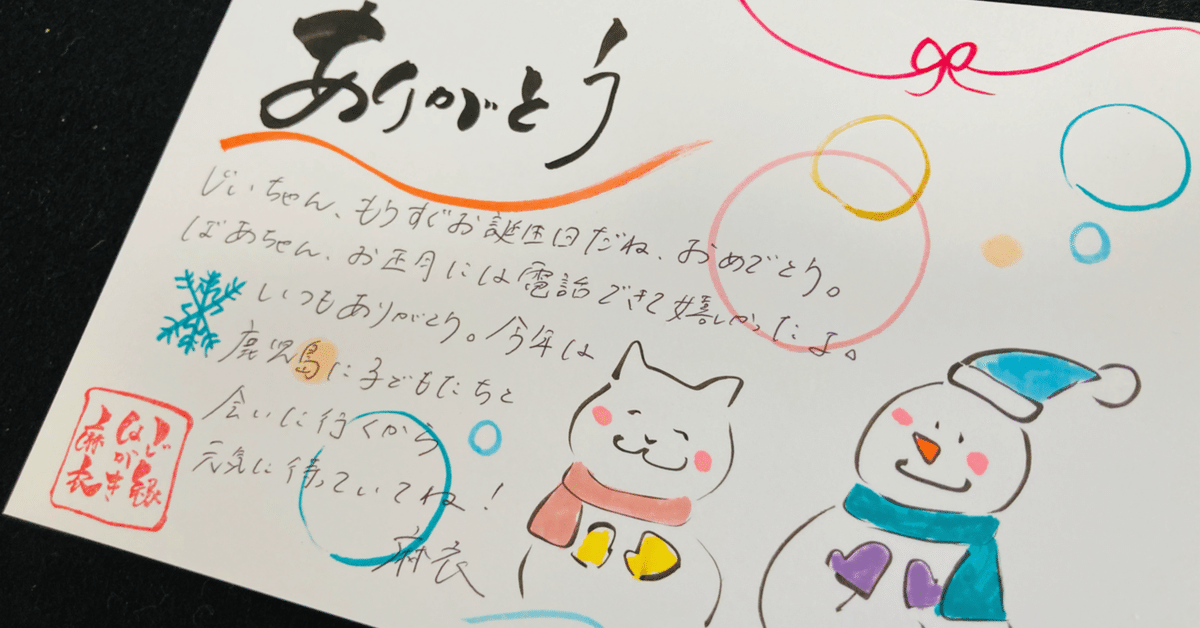 ありがとう
じいちゃん、もうすぐお誕生日だね、おめでとう。
ばあちゃん、お正月には電話できて嬉しかったよ。
いつもありがとう。今年は
鹿児島に子どもたちと
会いに行くから
元気に待っていてね!
麻衣
心縁
はがき
麻衣